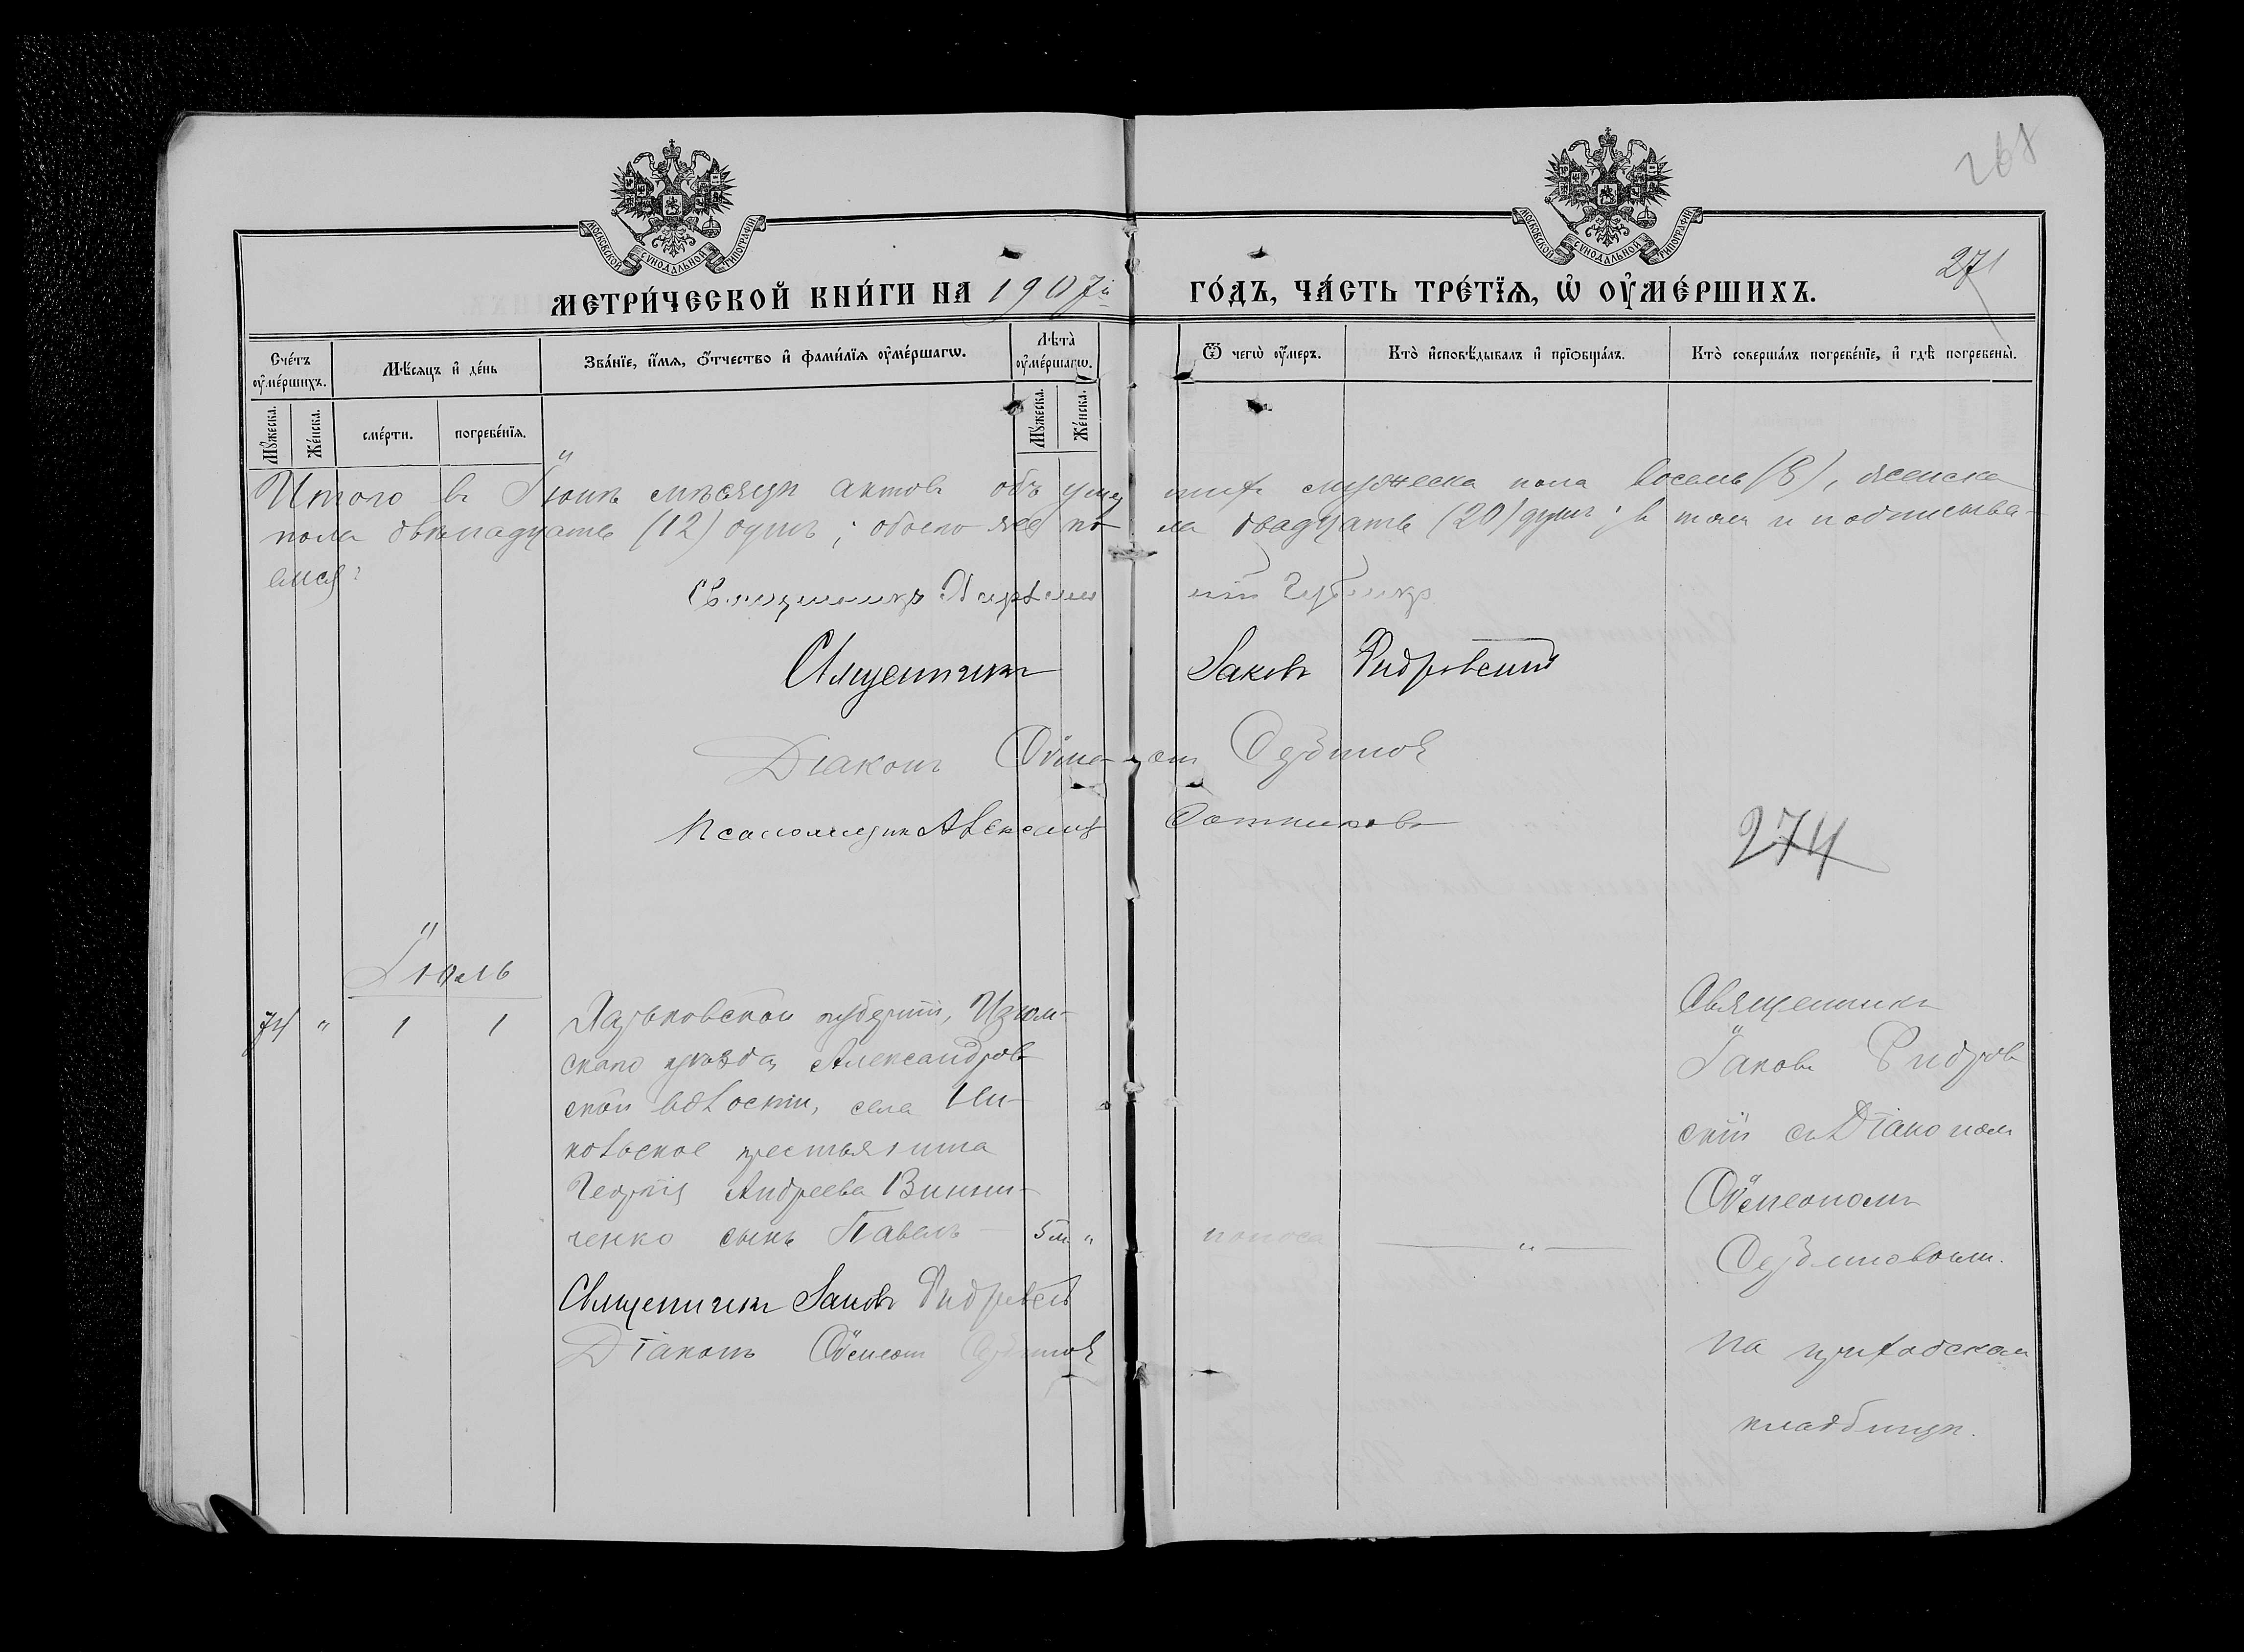 268
МОСКОВСКОЙ СѴНОДАЛЬНОЙ ТИПОГРАФІИ
МОСКОВСКОЙ СѴНОДАЛЬНОЙ ТИПОГРАФІИ
271
МЕТРИ́ЧЕСКОЙ КНИ́ГИ НА 1907й ГО́ДЪ, ЧА́СТЬ ТРЕ́ТЇѦ, Ѡ҆ ОУ҆МЕ́РШИХЪ.
Сче́тъ оу҆ме́ршихъ.
Мѣ́сяцъ и҆ де́нь
Зва́нїе, и҆́мѧ, ѻ҆́тчество и҆ фами́лїѧ оу҆ме́ршагѡ.
Лѣта̀ оу҆ме́ршагѡ.
Ѿ чегѡ̀ оу҆́меръ.
Кто̀ и҆сповѣ́дывалъ и҆ прїѡбща́лъ.
Кто̀ соверша́лъ погребе́нїе, и҆ гдѣ̀ погребены̀.
Мꙋ́жеска.
Же́нска.
сме́рти.
погребе́нїѧ.
Мꙋ́жеска.
Же́нска.
Итого въ Іюнѣ мѣсяцѣ актовъ объ умершихъ мужеска пола восемь (8), женска
пола двѣнадцать (12) душъ; обоего же пола двадцать (20) душъ; въ томъ и подписыва-
емся:
Священникъ
Священникъ Іаковъ Ѳидровскій
Діаконъ Сѵмеонъ
Псаломщикъ Сотниковъ
274
Іюль
74 " 1 1
Харьковской губерніи, Изюм-
скаго уѣзда, Александров-
ской волости, села Ни-
кольское крестьянина
Георгія Андреева Винни-
ченко сынъ Павелъ 5 м. "
поноса
"
Священникъ
Іаковъ Ѳидров-
скій съ Діакономъ
Сѵмеономъ
на приходскомъ
кладбищѣ.
Священникъ Іаковъ Ѳидровскій
Діаконъ Сѵмеонъ